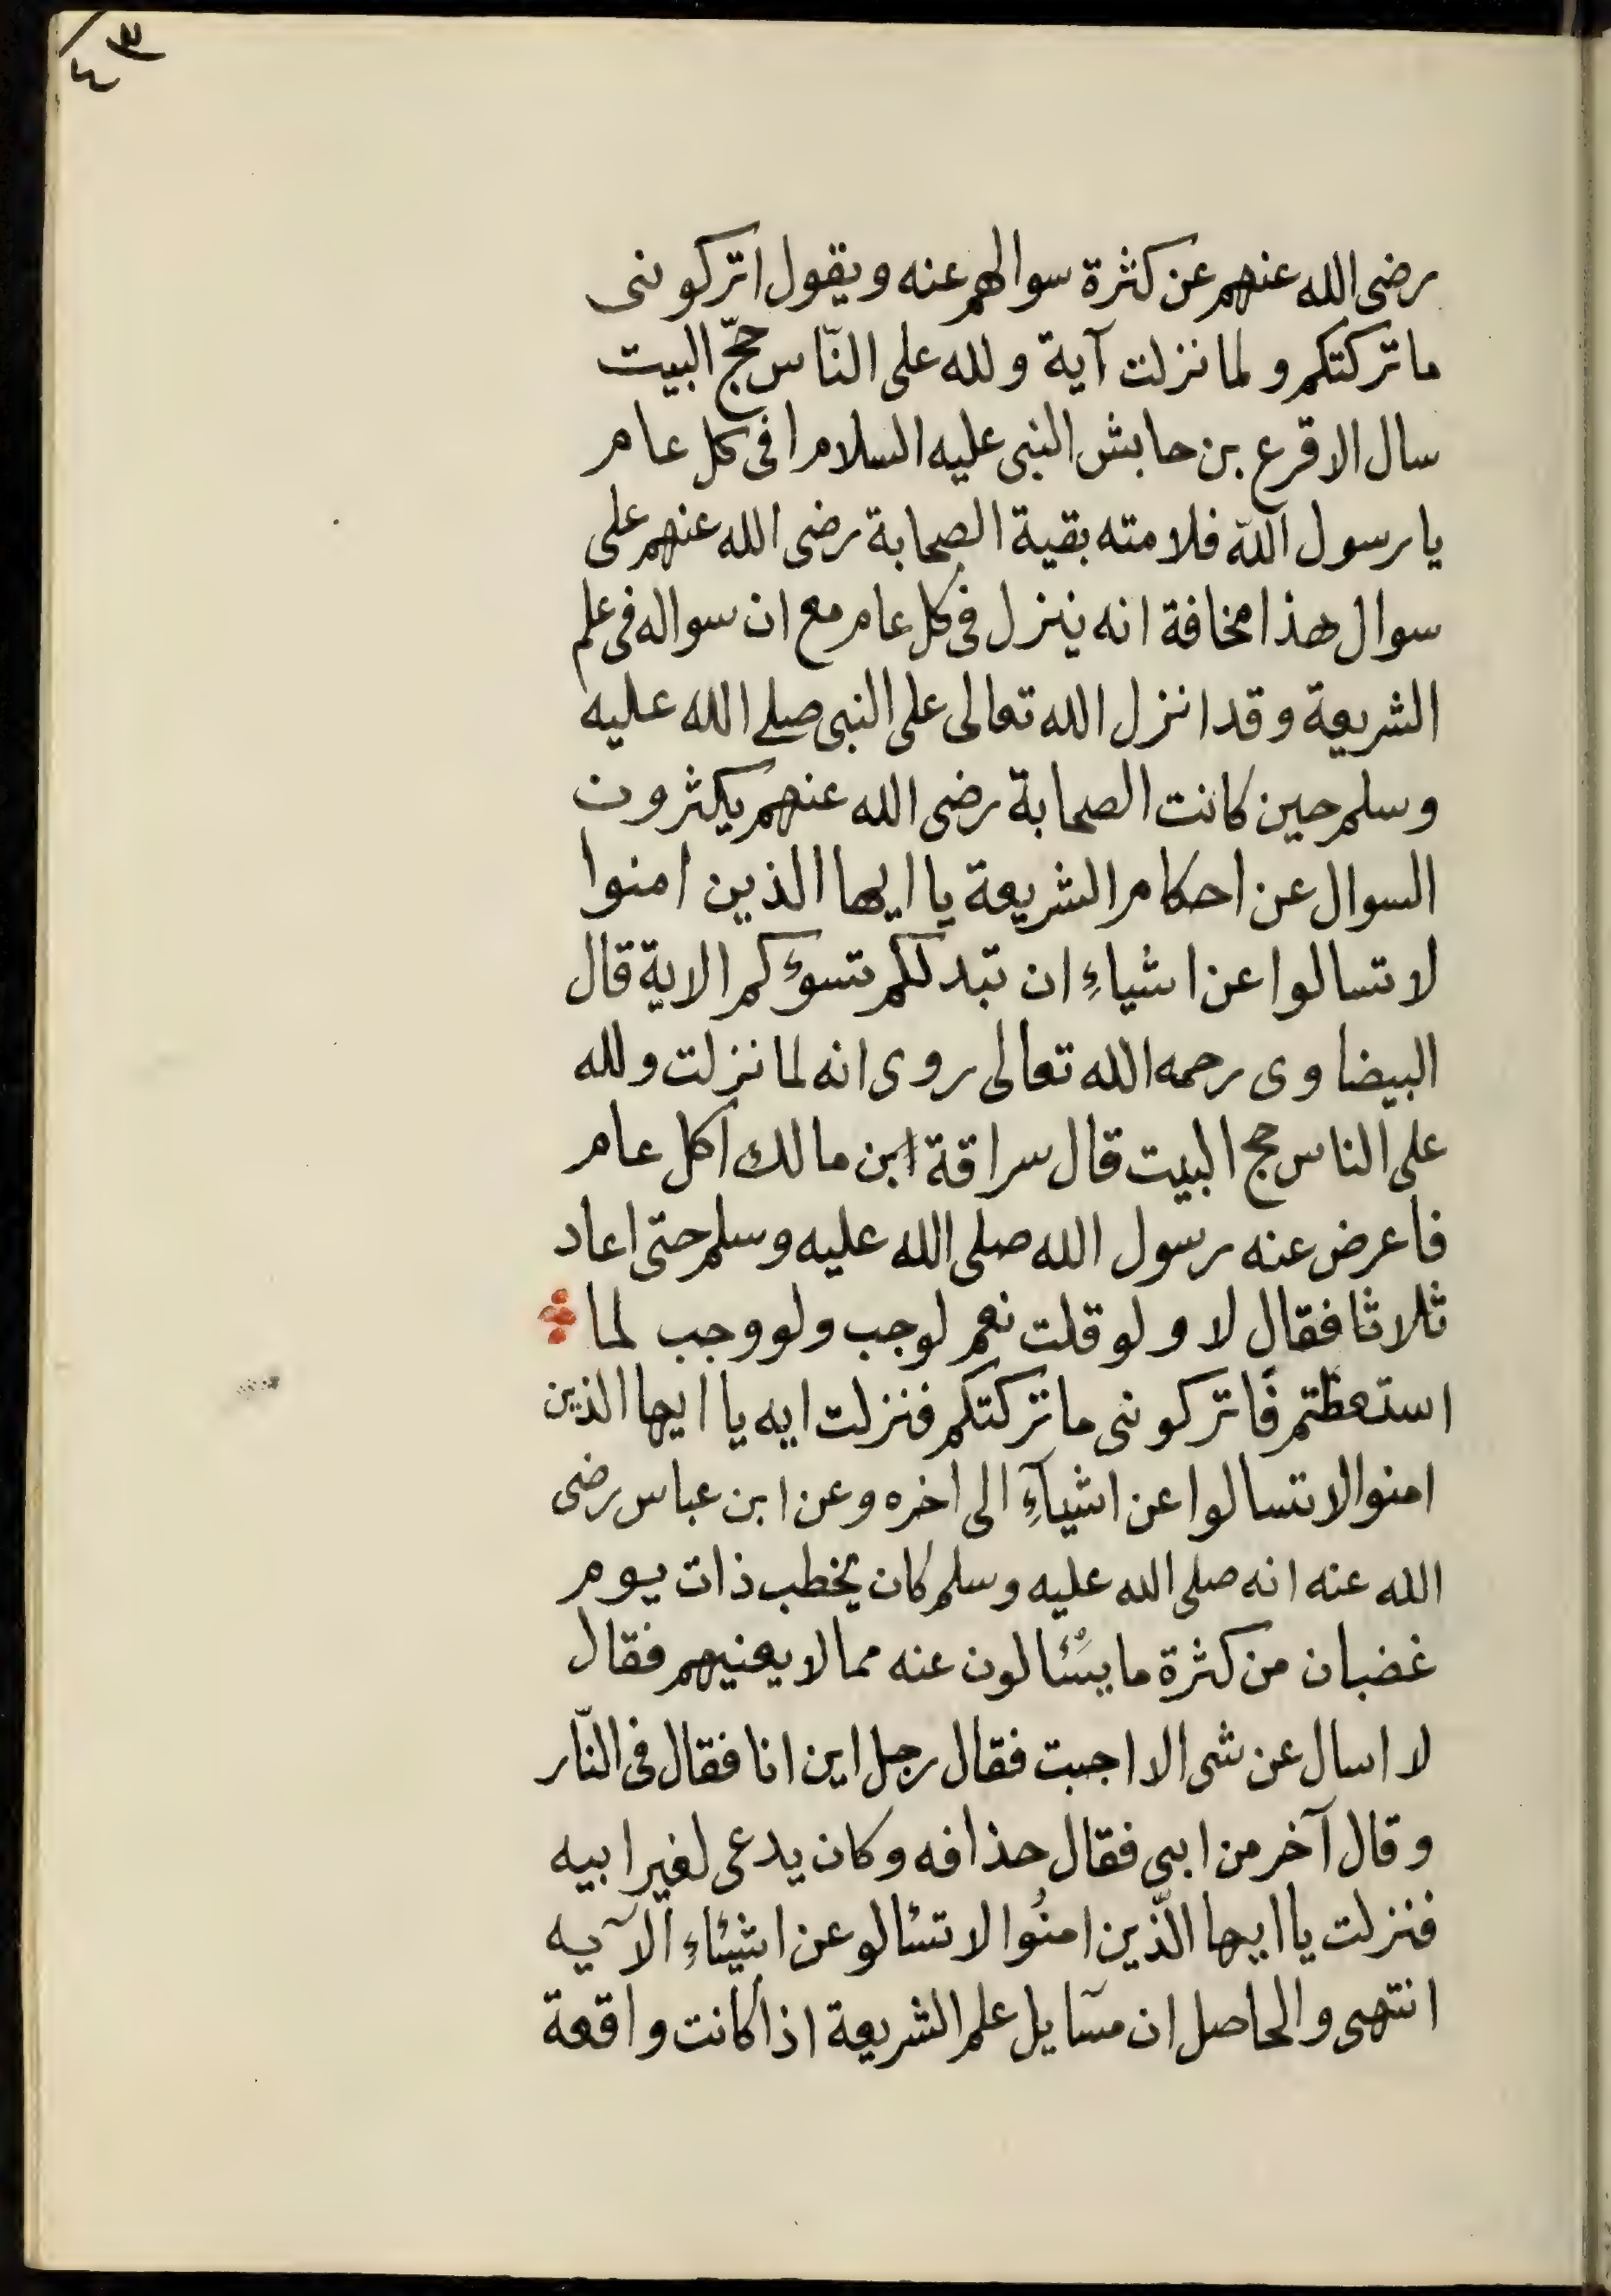 ٣
٤
رضى الله عنهم عن كثرة سوالهم عنه ويقول اتركونى
ما تركتكم ولما نزلت آية ولله على النّاس حجّ البيت
سال الاقرع بن حابش النبى عليه السلام افى كل عام
يا رسول اللّه فلامته بقية الصحابة رضى الله عنهم على
سوال هذا مخافة انه ينزل فى كل عام مع ان سواله فى علم
الشريعة وقد انزل الله تعالى على النبى صلى الله عليه
وسلم حين كانت الصحابة رضى الله عنهم يكثرون
السوال عن احكام الشريعة يا ايها الذين امنوا
لا تسالوا عن اشياءِ ان تبد لكم تسوءكم الاية قال
البيضاوى رحمه الله تعالى روى انه لما نزلت ولله
على الناس حج البيت قال سراقة ابن مالك اكل عام
فاعرض عنه رسول الله صلى الله عليه وسلم حتى اعاد
ثلاثا فقال لا ولو قلت نعم لوجب ولو وجب لما
استعظتم فاتركونى ما تركتكم فنزلت ايه يا ايها الذين
امنوا لا تسالوا عن اشيآءِ الى اخره وعن ابن عباس رضى
الله عنه انه صلى الله عليه وسلم كان يخطب ذات يوم
غضبان من كثرة ما يسئالون عنه مما لا يعنيهم فقال
لا اسال عن شى الا اجبت فقال رجل اين انا فقال فى النّار
وقال آخر من ابى فقال حذافه وكان يدعى لغير ابيه
فنزلت يا ايها الّذين امنُوا لا تسئالو عن اشيئاءِ الآيه
انتهى والحاصل ان مسآيل علم الشريعة اذا كانت واقعة